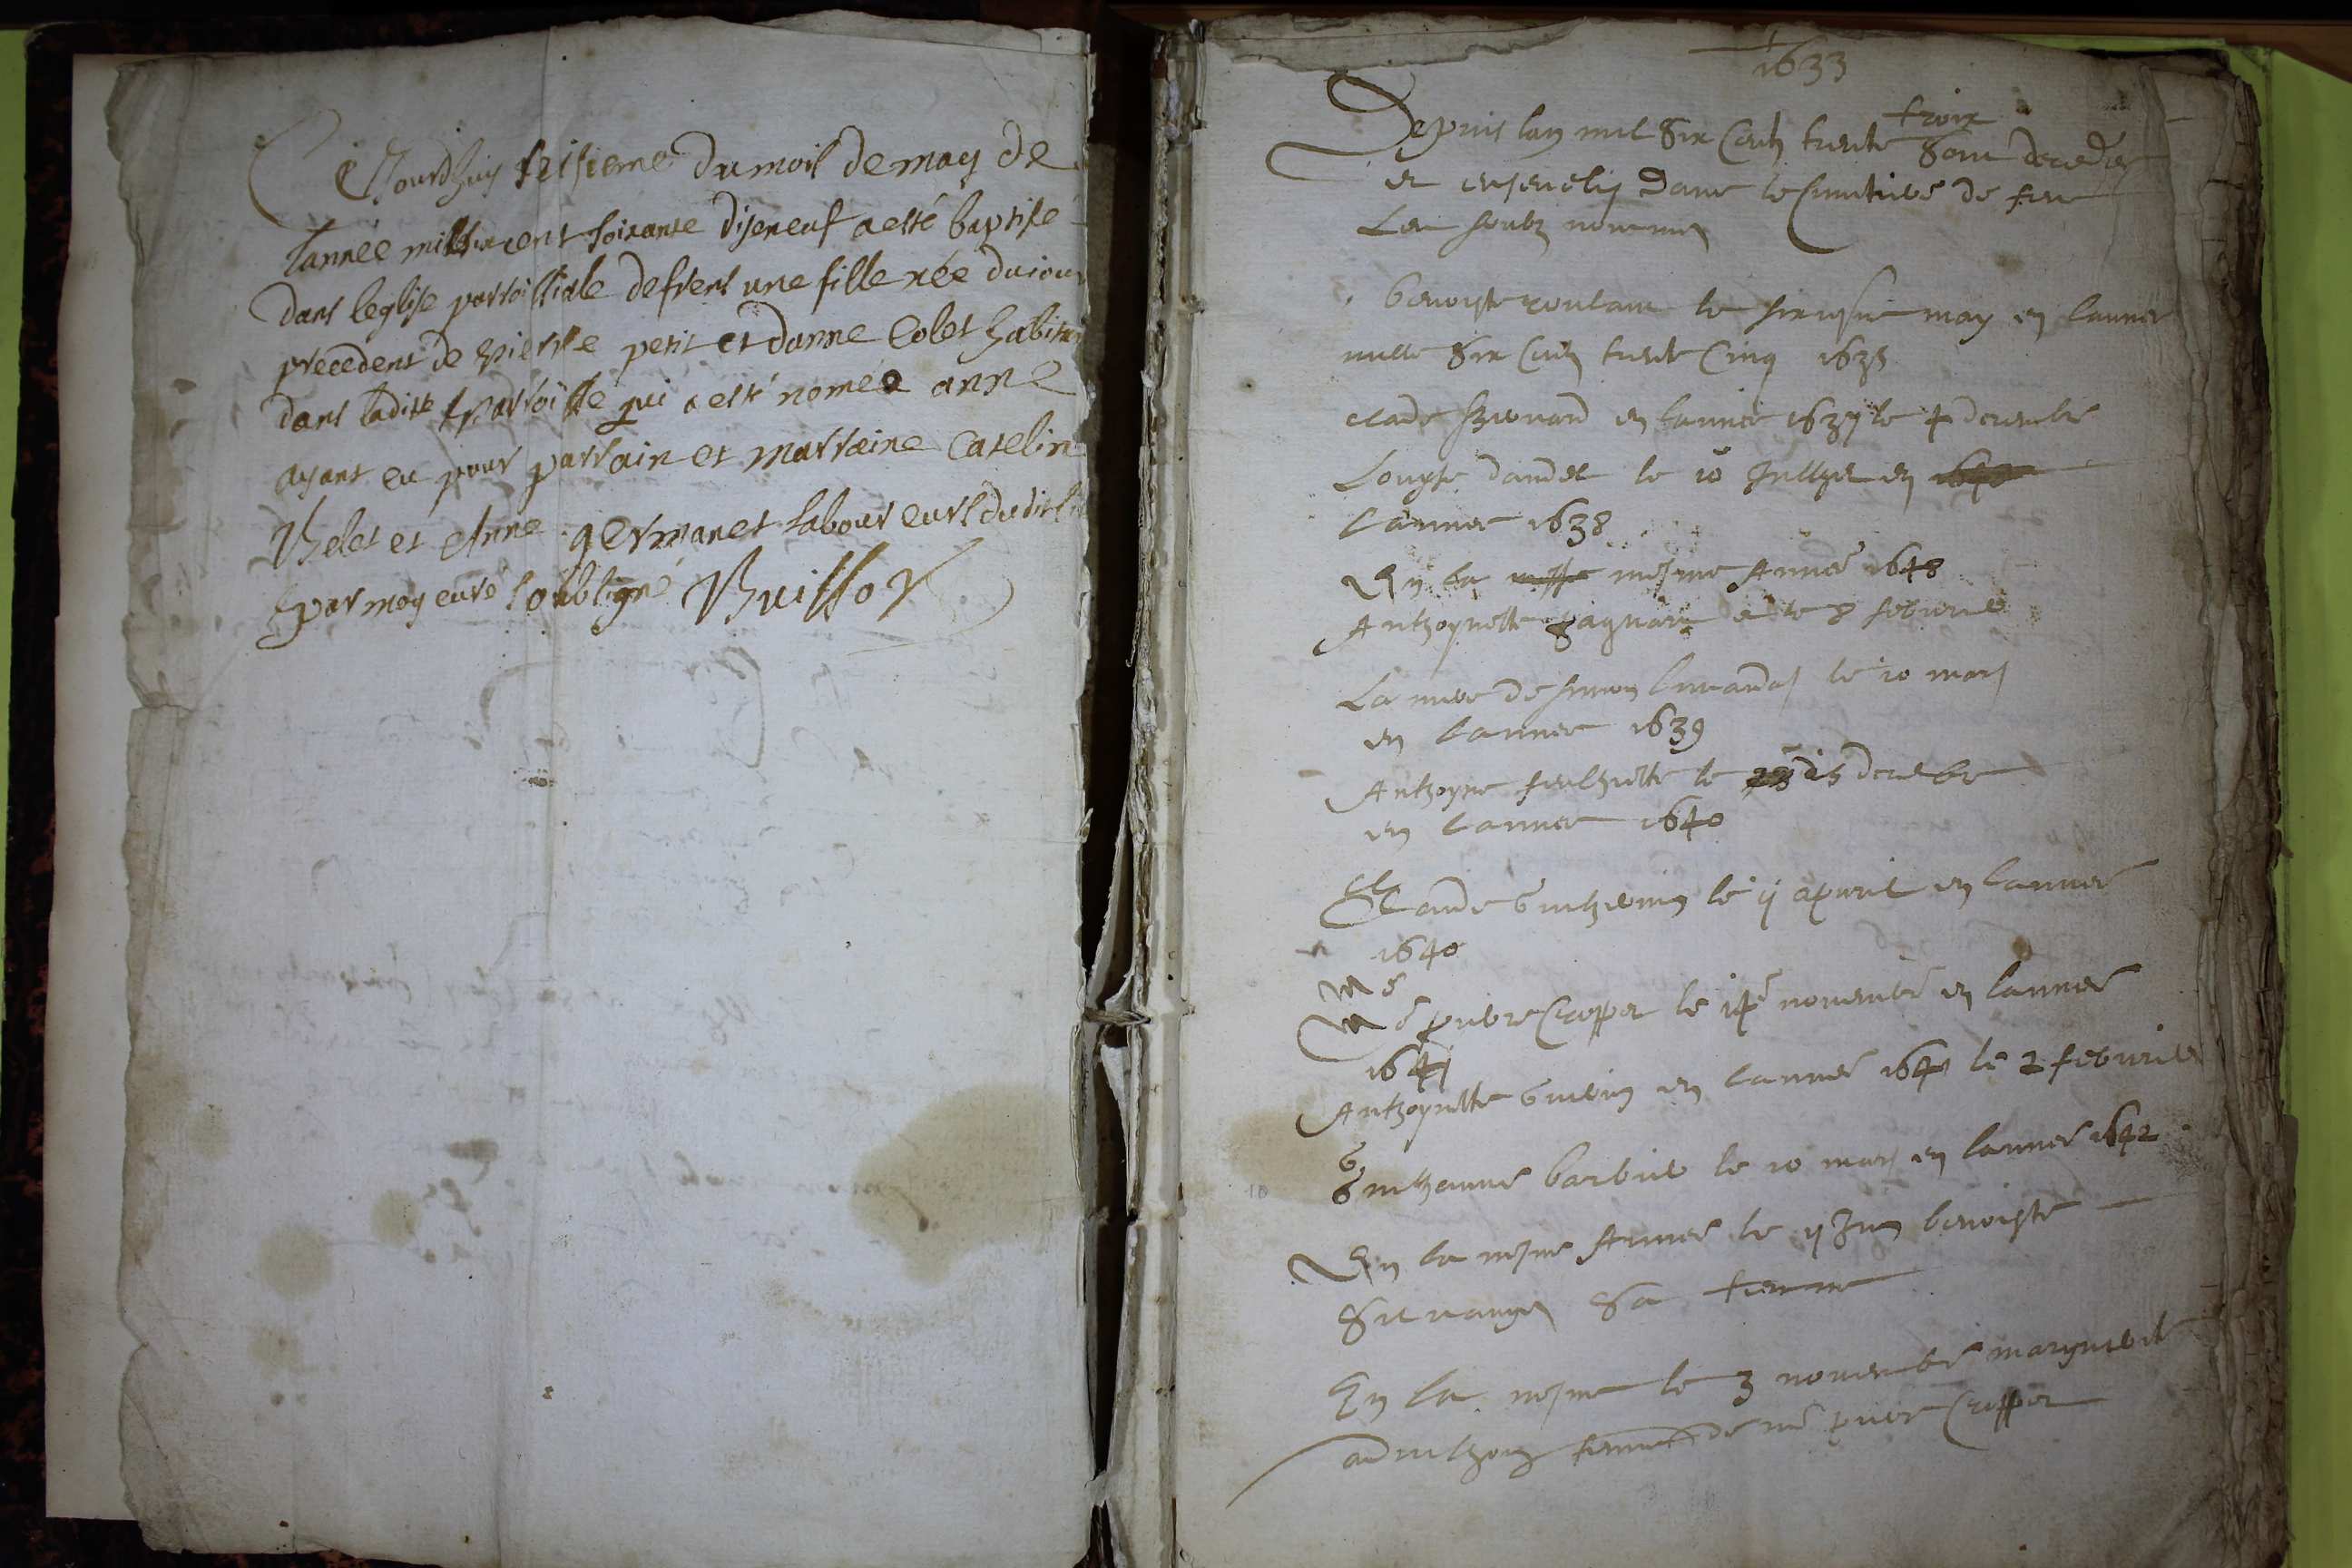 Ce Jourdhuy seisieme du mois de may de
lannée mil six cent soixante diseneuf a esté baptise
dans leglise parroissiale de frens une fille née du jour
precedent de pierre petit et danne Colet habitan
dans ladite parroisse qui a esté nomée anne
ayant eu pour parrain et marraine Catelin
Belet et Anne germanet laboureurs dudit li
par moy curé soubsigné Buissor
1633
Depuis lan mil Six Cent trente trois Sont decedes
et ensevelis Dans le Cimtiere de
Les soubz nommes
benoiste le may en lannee
mille Six Cent trente Cinq 1635
clade en lannee 1637 le 4 decembre
Louyse daudet le 10 Jullyet en
Lannee 1638
En la mesme Annee 1648
Anthoynette le 8 febvrier
La mere de simon le 10 mars
en Lannee 1639
Anthoyne le 25 decembre
en Lannee 1640
Claude le ij apvril en Lannee
1640
Me
Me pierre Croppet le 14e novembre en lannee
1641
Anthoynette Guerin en Lannee 1641 le 2 febvrier
barbier le 10 mars en lannee 1642
En la mesme Annee le Jun benoiste
Sa femme
En la mesme le 3 novembre marguerite
femme de me pierre Croppet